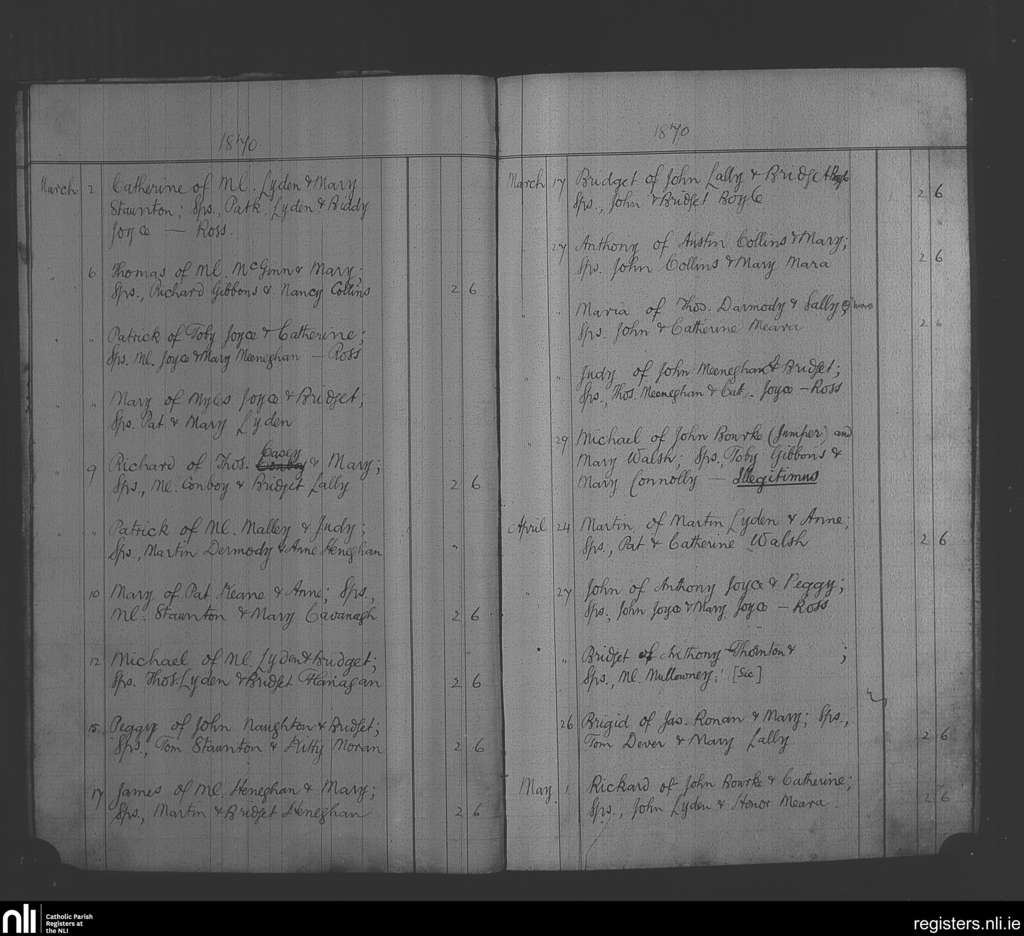 1870
March 2 Catherine of Ml. Lyden & Mary
Staunton; Sps., Patk. Lyden & Biddy
Joyce — Ross.
" 6 Thomas of Ml. McGinn & Mary;
Sps., Richard Gibbons & Nancy Collins 2 6
" " Patrick of Toby Joyce & Catherine;
Sps. Ml. Joyce & Mary Meeneghan — Ross
" " Mary of Myles Joyce & Bridget;
Sps. Pat & Mary Lyden
Casey
" 9 Richard of Thos. Conboy & Mary;
Sps., Ml. Conboy & Bridget Lally 2 6
" " Patrick of Ml. Malley & Judy;
Sps., Martin Dermody & Anne Heneghan "
10 Mary of Pat Keane & Anne; Sps.,
Ml. Staunton & Mary Cavanagh 2 6
12 Michael of Ml. Lyden & Bridget;
Sps. Thos. Lyden & Bridget Flanagan 2 6
15 Peggy of John Naughton & Bridget;
Sps., Tom Staunton & Kitty Moran 2 6
17 James of Ml. Heneghan & Mary;
Sps., Martin & Bridget Heneghan 2 6
1870
March 17 Bridget of John Lally & Bridget Boyle
Sps., John & Bridget Boyle 2 6
" 27 Anthony of Austin Collins & Mary;
Sps. John Collins & Mary Mara 2 6
" " Maria of Thos. Darmody & Sally
Sps. John & Catherine Meara 2 6
" " Judy of John Meeneghan & Bridget;
Sps., Thos. Meeneghan & Cat. Joyce — Ross
" 29 Michael of John Bourke (Jumper) and
Mary Walsh; Sps., Toby Gibbons &
Mary Connolly — Illegitimus
April 24 Martin of Martin Lyden & Anne;
Sps., Pat & Catherine Walsh 2 6
" 27 John of Anthony Joyce & Peggy;
Sps. John Joyce & Mary Joyce — Ross
" Bridget of Anthony Thornton & ;
Sps., Ml. Mullowney; [Sic]
26 Brigid of Jas. Ronan & Mary; Sps.,
Tom Dever & Mary Lally 2 6
May 1 Rickard of John Bourke & Catherine;
Sps., John Lyden & Honor Meara 2 6
nli Catholic Parish
Registers at
the NLI
registers.nli.ie